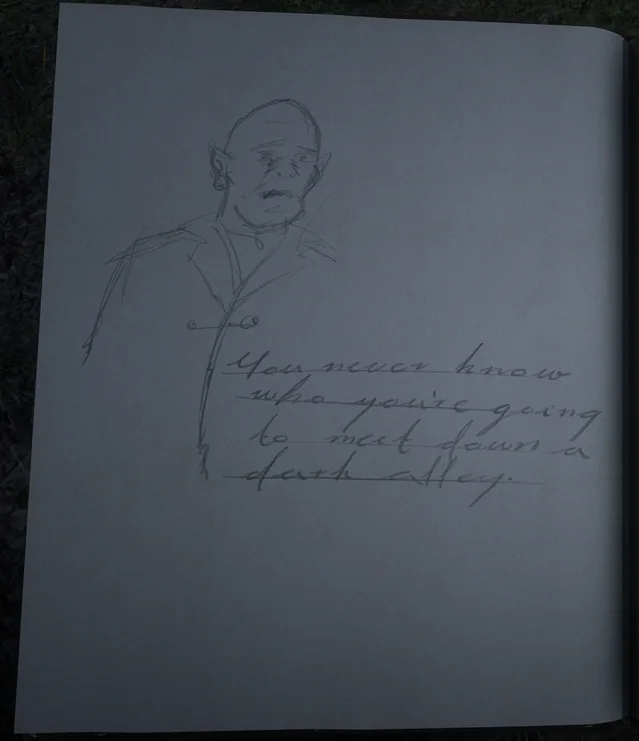 You never know
who you're going
to meet down a
dark alley.